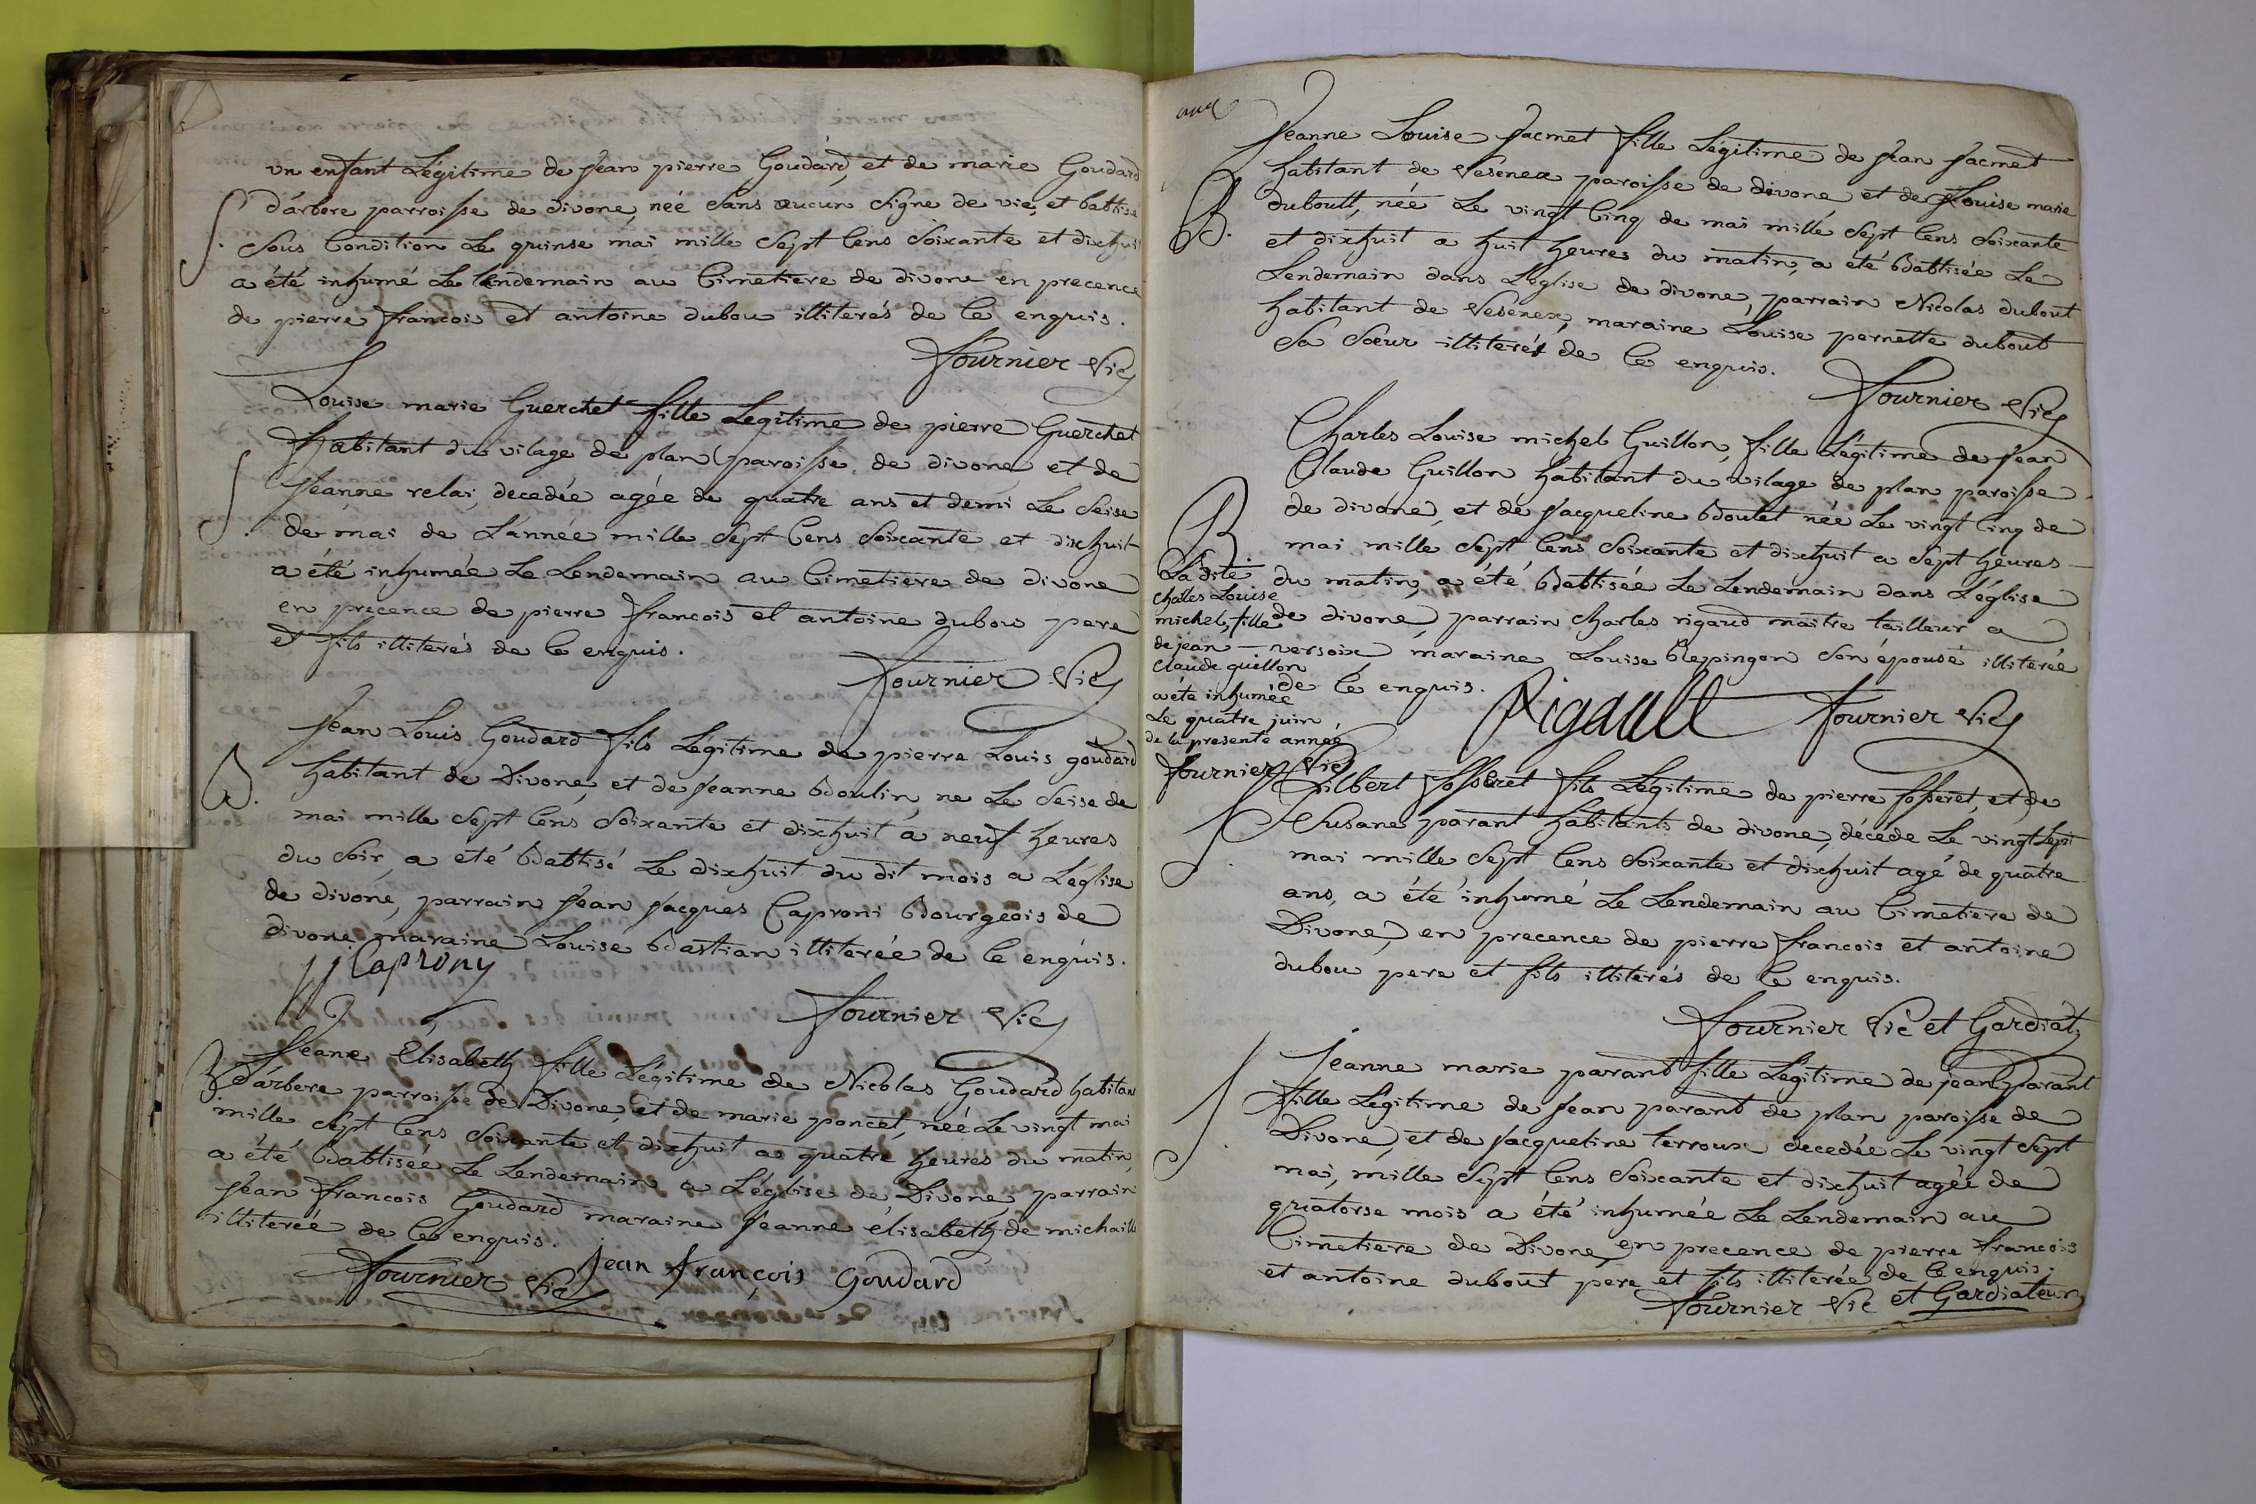 un enfant Légitime de jean pierre Goudard, et de marie Goudard
S. d'arbere parroisse de divone, néé sans aucun signe de vie, et battisé
sous Condition Le quinse mai mille sept Cens soixante et dixhuit
a été inhumé Le Lendemain au Cimetiere de divone en precence
de pierre francois et antoine dubou illiterés de Ce enquis.
Fournier Vic
Louise marie Guerchet fille Legitime de pierre Guerchet
S. habitant du vilage de plan paroisse de divone et de
jeanne relai, decedée agée de quatre ans et demi Le seise
de mai de L'année mille sept Cens soixante et dixhuit
a été inhumée Le Lendemain au Cimetiere de divone
en precence de pierre francois et antoine dubou pere
et fils illiterés de Ce enquis.
Fournier Vic
jean Louis Goudard fils Legitime de pierre Louis goudard
B. habitant de Divone, et de jeanne Boulin, ne Le seise de
mai mille sept Cens soixante et dixhuit a neuf heures
du soir, a eté Battisé Le dixhuit du dit mois a L'église
de divone, parrain jean jacques Caproni Bourgeois de
divone maraine Louise Bastian illiterée de Ce enquis.
jj Caprony
Fournier Vic
jeane Elisabeth fille Légitime de Nicolas Goudard habitan
B d'arbere parroisse de Divone, et de marie poncet, néé Le vingt mai
mille sept Cens soixante et dixhuit a quatre heures du matin,
a été Battisée Le Lendemain a L'église de Divone, parrain
jean francois Goudard maraine jeanne elisabeth de michaille
illiterée de Ce enquis.
jean françois Goudard
Fournier Vic
jeanne Louise jacmet fille Légitime de jean jacmet
habitant de Vesenex paroisse de divone, et de Louise marie
B. duboult, née Le vingt Cinq de mai mille sept Cens soixante
et dixhuit a huit heures du matin, a été Battisée Le
Lendemain dans L'église de divone, parrain Nicolas dubout
habitant de Vesenex, maraine Louise pernette dubout
sa sœur illiterés de Ce enquis.
Fournier Vic
Charles Louise michel Guillon, fille Légitime de jean
Claude Guillon habitant du vilage de plan paroisse
B. de divone, et de jacqueline Boulet néé Le vingt Cinq de
mai mille sept Cens soixante et dixhuit a sept heures
du matin, a été Battisée Le Lendemain dans L'église
de divone, parrain charles rigaud maitre tailleur a
versoix maraine Louise Repingon son épouse illiterée
de Ce enquis.
Rigault Fournier Vic
La dite
charles Louise
michel, fille
de jean
claude guillon
a été inhumée
Le quatre juin
de la presente année
fournier Vic
Gilbert josseret fils Légitime de pierre josseret, et de
S. Susane parant habitants de divone, décéde Le vingt sept
mai mille sept Cens soixante et dixhuit agé de quatre
ans, a été inhumé Le Lendemain au Cimetiere de
Divone, en precence de pierre francois et antoine
dubou pere et fils illiterés de Ce enquis.
Fournier Vic et Gardiat.
jeanne marie parant fille Légitime de jean parant
S. fille Légitime de jean parant de plan paroisse de
Divone, et de jacqueline terroux decedée Le vingt sept
mai, mille sept Cens soixante et dixhuit agée de
quatorse mois a été inhumée Le Lendemain au
Cimetiere de Divone en precence de pierre francois
et antoine dubout pere et fils illiterée de Ce enquis.
Fournier Vic et Gardiateur